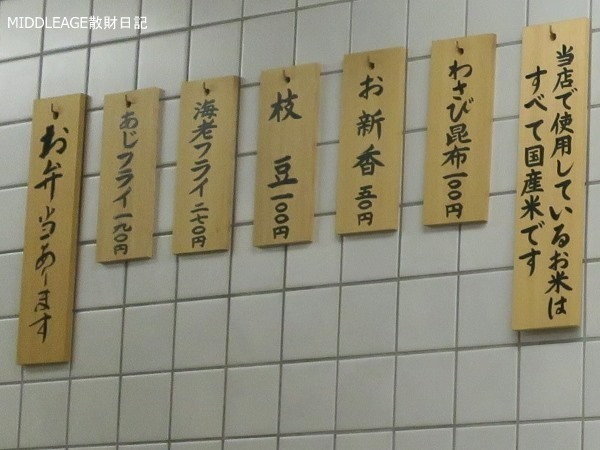 MIDDLEAGE散財日記
当店で使用しているお米は
すべて国産米です
わさび昆布一〇〇円
お新香五〇円
枝豆一〇〇円
海老フライ二七〇円
あじフライ一九〇円
お弁当あります